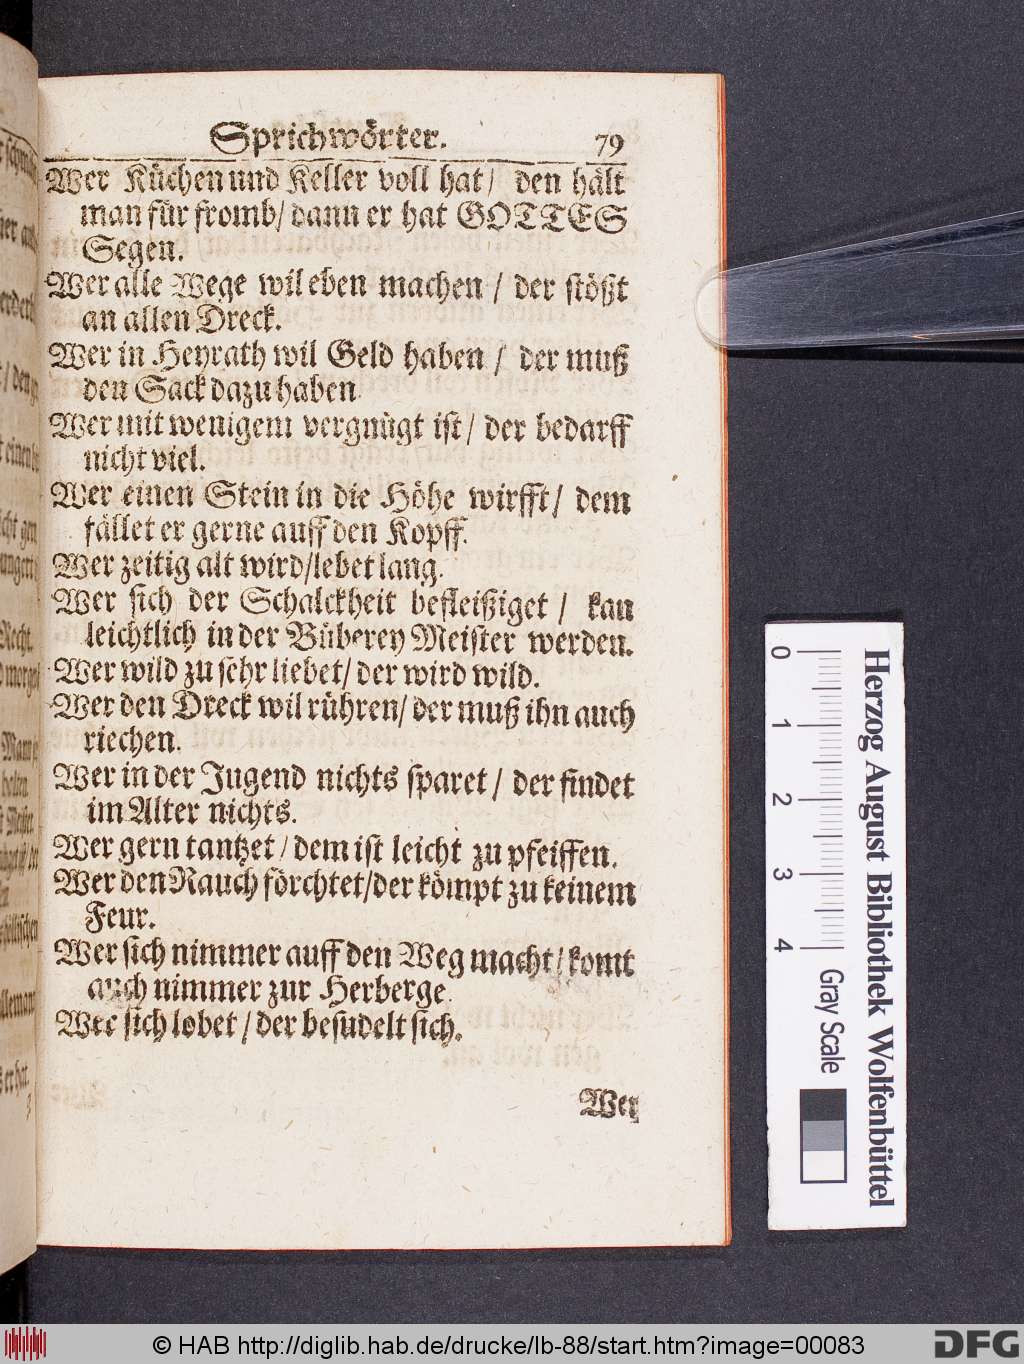 Sprichwörter. 79
Wer Küchen und Keller voll hat/ den hält
man für fromb/ dann er hat GOTTES
Segen.
Wer alle Wege wil eben machen / der stößt
an allen Dreck.
Wer in Heyrath wil Geld haben / der muß
den Sack dazu haben.
Wer mit wenigem vergnügt ist/ der bedarff
nicht viel.
Wer einen Stein in die Höhe wirfft/ dem
fället er gerne auff den Kopff.
Wer zeitig alt wird/lebet lang.
Wer sich der Schalckheit befleißiget / kan
leichtlich in der Büberey Meister werden.
Wer wild zu sehr liebet/ der wird wild.
Wer den Dreck wil rühren/ der muß ihn auch
riechen.
Wer in der Jugend nichts sparet / der findet
im Alter nichts.
Wer gern tantzet / dem ist leicht zu pfeiffen.
Wer den Rauch förchtet/der kömpt zu keinem
Feur.
Wer sich nimmer auff den Weg macht/ komt
auch nimmer zur Herberge.
Wer sich lobet / der besudelt sich.
Wer
0 1 2 3 4
Gray Scale
Herzog August Bibliothek Wolfenbüttel
© HAB http://diglib.hab.de/drucke/lb-88/start.htm?image=00083
DFG